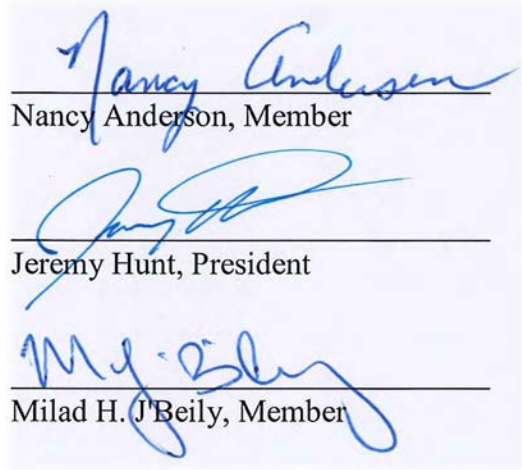 Nancy Anderson
Nancy Anderson, Member
Jeremy Hunt, President
Milad H. J'Beily, Member